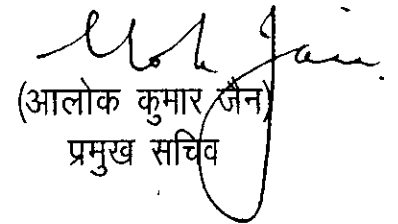 Alok Jain
(आलोक कुमार जैन)
प्रमुख सचिव